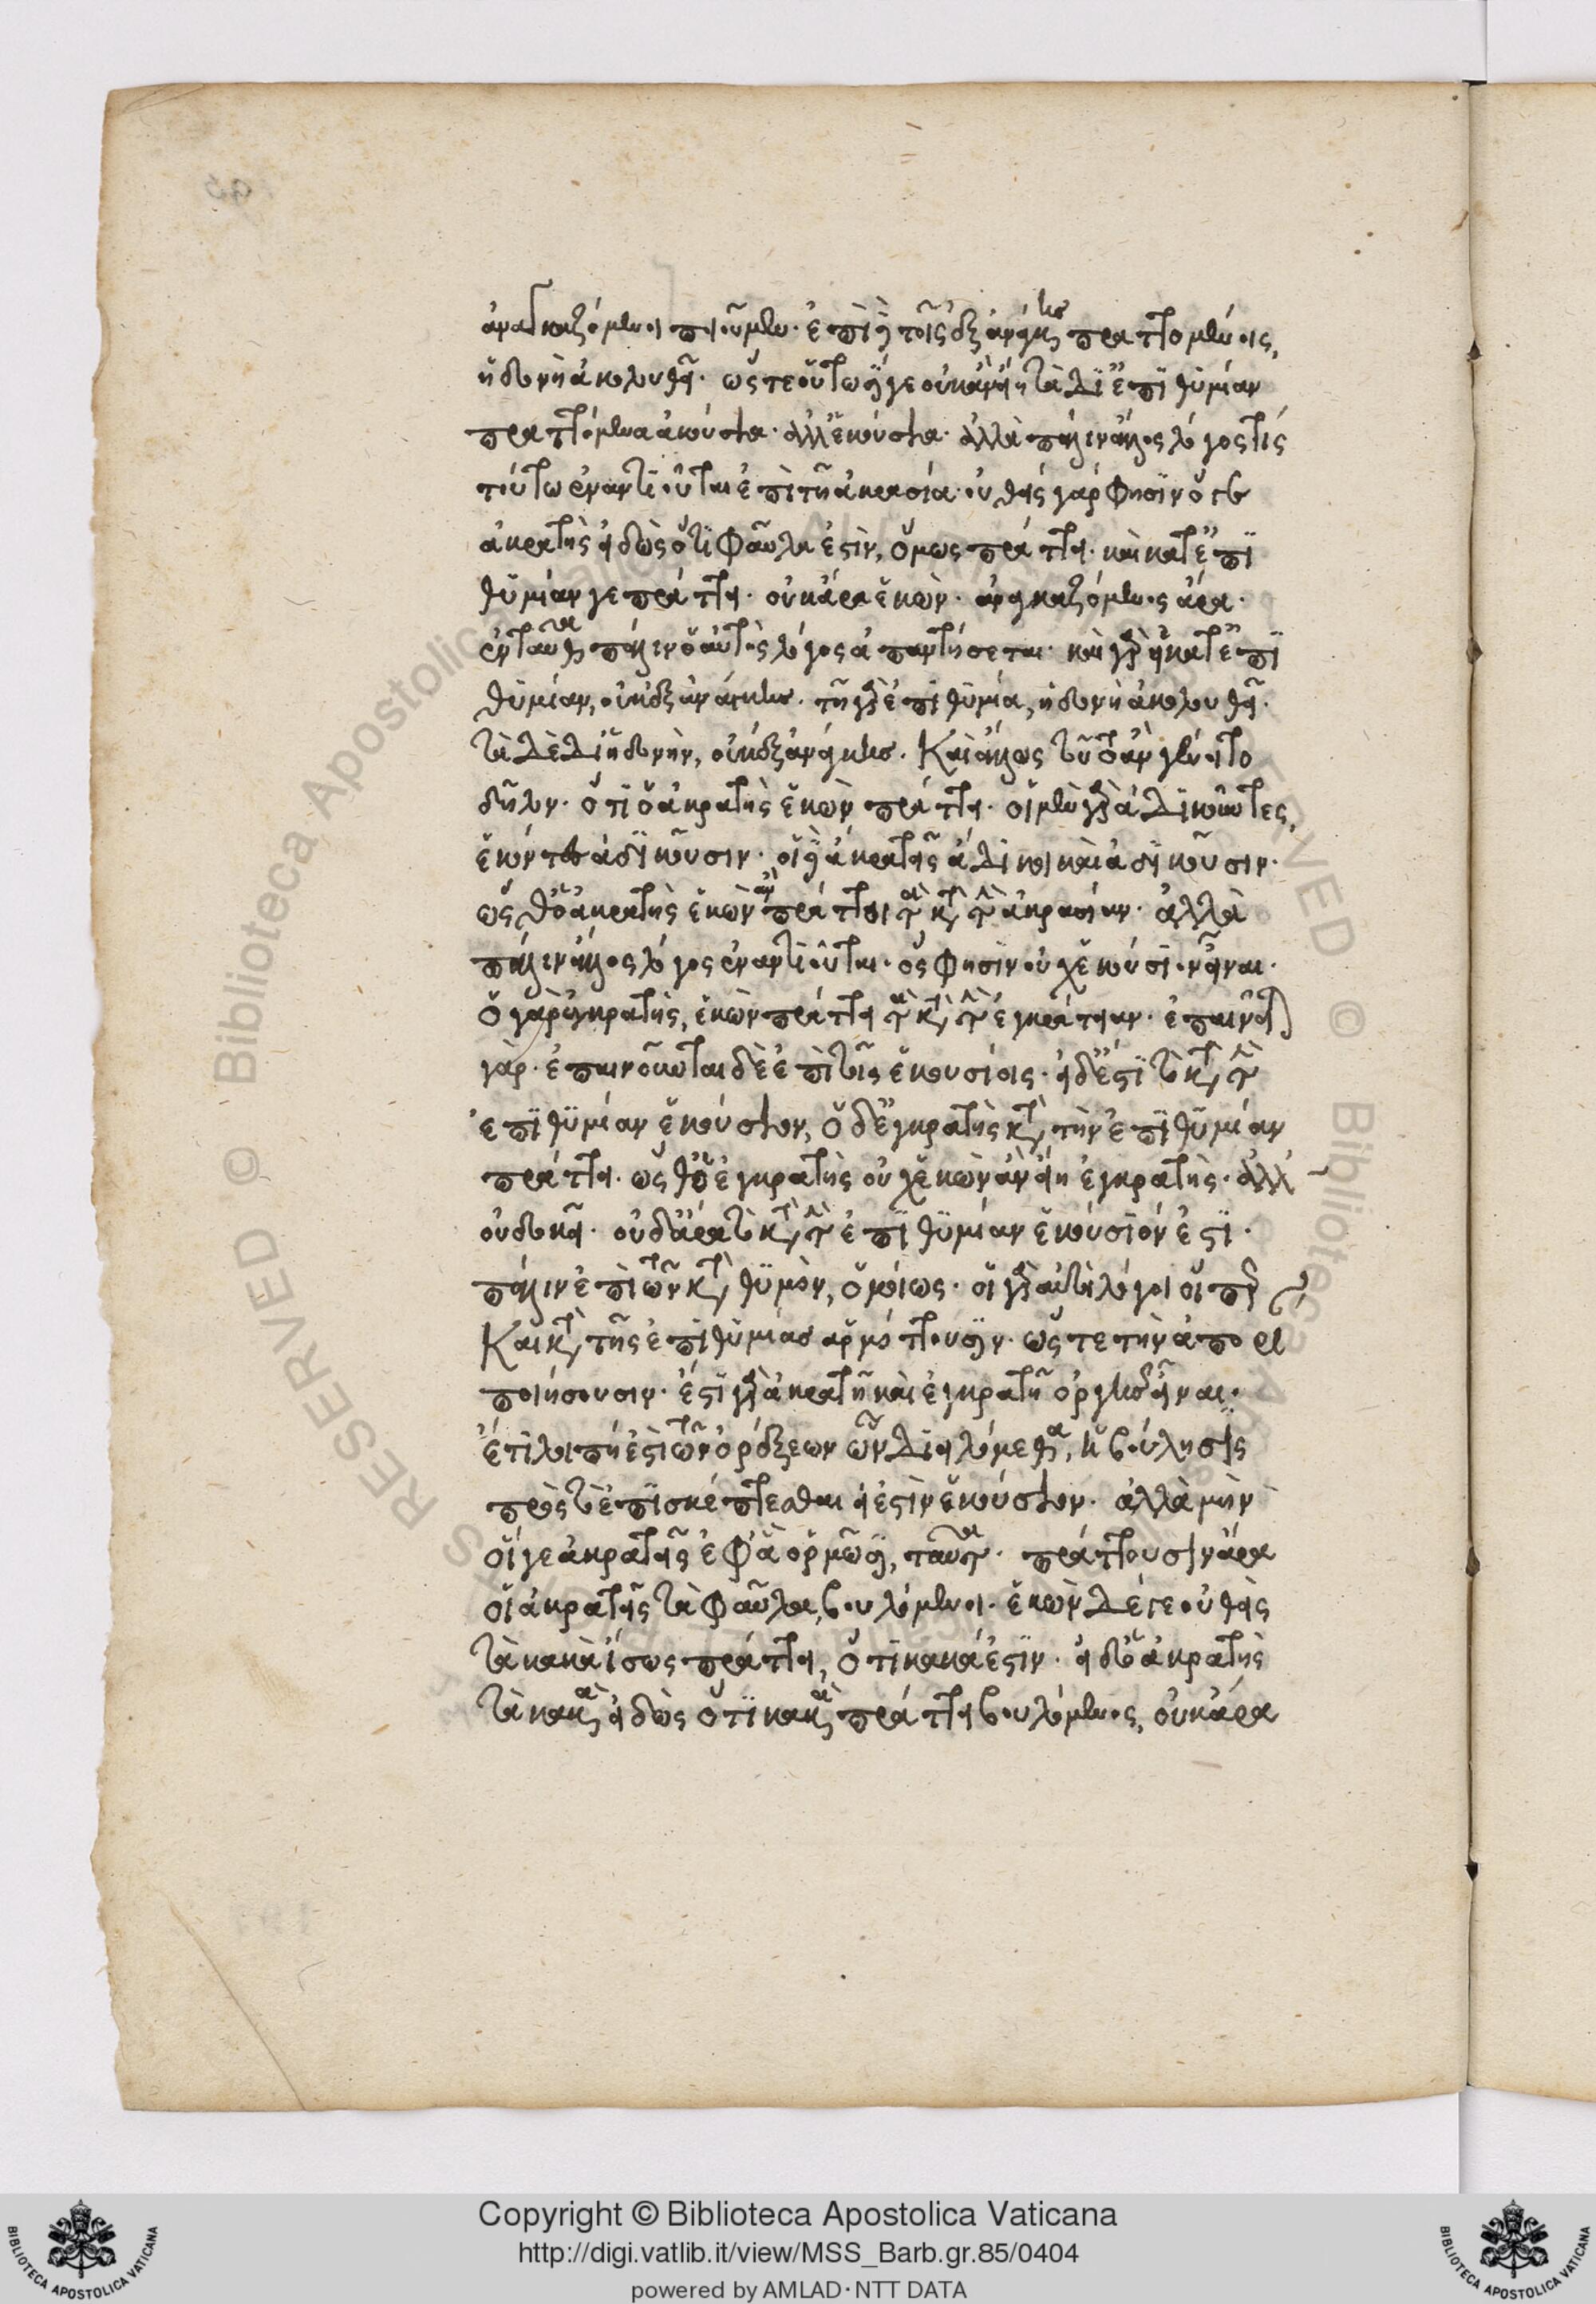 ἀναγκαζόμενοι ποιοῦμεν. ἐπὶ δὲ τοῖς ἐξ ἀνάγκης πραττομένοις,
ἡδονὴ ἀκολουθεῖ. ὥστε οὕτω γε οὐκ ἂν εἴη τὰ δι' ἐπιθυμίαν
πραττόμενα ἀκούσια. ἀλλ' ἑκούσια. ἀλλὰ πάλιν ἄλλος λόγος τίς
τούτω ἐναντιοῦται ἐπὶ τῆ ἀκρασία. οὐθεὶς γάρ φησιν ὅτε
ἀκρατὴς εἰδὼς ὅτι φαῦλα ἐστὶν, ὅμως πράττει. καὶ κατ' ἐπι
θυμίαν γε πράττει. οὐκ ἄρα ἑκὼν. ἀναγκαζόμενος ἄρα.
ἐνταῦθα πάλιν ὁ αὐτὸς λόγος ἀπαντήσεται. καὶ γὰρ εἰ κατ' ἐπι
θυμίαν, οὐκ ἐξ ἀνάγκης. τῆ γὰρ ἐπιθυμία, ἡδονὴ ἀκολουθεῖ.
τὰ δὲ δι' ἡδονὴν, οὐκ ἐξ ἀνάγκης. Καὶ ἄλλως τοῦτ' ἂν γένοιτο
δῆλον. ὅτι ὁ ἀκρατὴς ἑκὼν πράττει. οἱ μὲν γὰρ ἀδικοῦντες,
ἑκόντες ἀδικοῦσιν. οἱ δὲ ἀκρατεῖς ἄδικοι καὶ ἀδικοῦσιν.
ὥσθ' ὁ ἀκρατὴς ἑκὼν ἂν πράττοι τὰ κατὰ τὴν ἀκρασίαν. ἀλλὰ
πάλιν ἄλλος λόγος ἐναντιοῦται. ὅς φησιν οὐχ ἑκούσιον εἶναι.
ὁ γὰρ ἐγκρατὴς, ἑκὼν πράττει τὰ κατὰ τὴν ἐγκράτειαν. ἐπαινεῖται
γὰρ. ἐπαινοῦνται δὲ ἐπὶ τοῖς ἑκουσίοις. εἰ δ' ἔστι τὸ κατὰ τὴν
ἐπιθυμίαν ἑκούσιον, ὁ δ' ἐγκρατὴς κατὰ τὴν ἐπιθυμίαν
πράττει. ὥσθ' ὁ ἐγκρατὴς οὐχ ἑκὼν ἂν εἴη ἐγκρατὴς. ἀλλ'
οὐ δοκεῖ. οὐδ' ἄρα τὸ κατὰ τὴν ἐπιθυμίαν ἑκούσιόν ἐστι.
πάλιν ἐπὶ τῶν κατὰ θυμὸν, ὁμοίως. οἱ γὰρ αὐτοὶ λόγοι οἱ περὶ
Καὶ κατὰ τῆς ἐπιθυμίας ἁρμόττουσιν. ὥστε τὴν ἀπορι
ποιήσουσιν. ἔστι γὰρ ἀκρατῆ καὶ ἐγκρατῆ ὀργῆς εἶναι.
ἔτι λοιπή ἐστι τῶν ὀρέξεων ὧν διειλόμεθα, ἡ βούλησις
πρὸς τὸ ἐπισκέπτεσθαι εἰ ἐστὶν ἑκούσιον. ἀλλὰ μὴν
οἵ γε ἀκρατεῖς ἐφ' ἃ ὁρμῶσι, ταῦτα. πράττουσιν ἄρα
οἱ ἀκρατεῖς τὰ φαῦλα, βουλόμενοι. ἑκὼν δέ γε οὐθεὶς
τὰ κακὰ ἴσως πράττει, ὅτι κακά ἐστιν. εἰ δ' ὁ ἀκρατὴς
τὰ κακὰ εἰδὼς ὅτι κακὰ πράττει βουλόμενος, οὐκ ἄρα
Copyright © Biblioteca Apostolica Vaticana
http://digi.vatlib.it/view/MSS_Barb.gr.85/0404
powered by AMLAD·NTT DATA